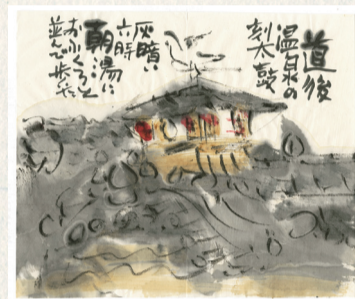 道後
温泉の
刻太鼓
灰暗い
六時
朝湯に
おふくろと
並んで歩く